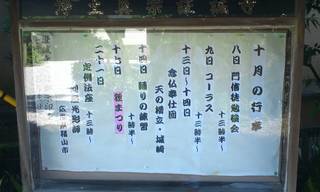 十月の行事
八日 門信徒勉強会
十三時半〜
九日 コーラス
十三時半〜
十三日〜十四日
念仏奉仕団
天の橋立・城崎
十四日 踊りの練習
十時半〜
十七日 稚まつり
十時半〜
二十一日
定例法座
十三時〜
福山市